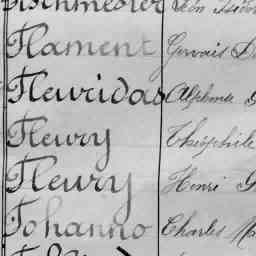 Flament Gervais
Fleuridas Alphonse
Fleury Théophile
Fleury Henri G
Fohanno Charles Ma